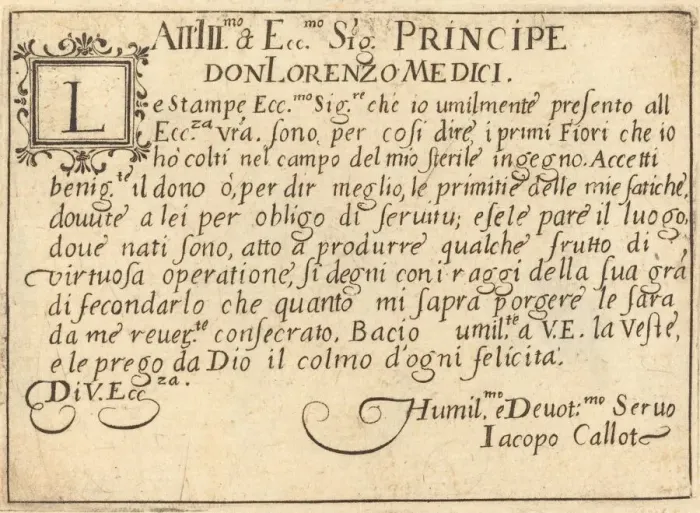 All'Ill.mo & Ecc.mo Sig. PRINCIPE
DON LORENZO MEDICI.
Le Stampe Ecc.mo Sig.re che io umilmente presento all
Ecc.za vra. sono, per cosi dire, i primi Fiori che io
ho colti nel campo del mio sterile ingegno. Accetti
benig.te il dono ò, per dir meglio, le primitie delle mie fatiche,
douute a lei per obligo di seruitu; e se le pare il luogo,
doue nati sono, atto a produrre qualche frutto di
virtuosa operatione, si degni con i raggi della sua gra.
di fecondarlo che quanto mi sapra porgere le sara
da me reuer.te consecrato. Bacio umil.te a V.E. la Veste,
e le prego da Dio il colmo d'ogni felicita.
Di V. Ecc.za.
Humil.mo e Deuot.mo Seruo
Iacopo Callot